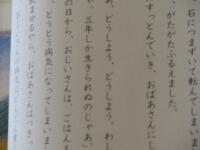 石につまずいて転んでしまい
、がたがたふるえました。
すっとんでいき、おばあさんにし
あ、どうしよう、どうしよう。わし
、三年しか生きられぬのじゃあ」
の日から、おじいさんは、ごはんも
、とうとう病気になってしまいま
ませるやら、おばあさんはつきっ